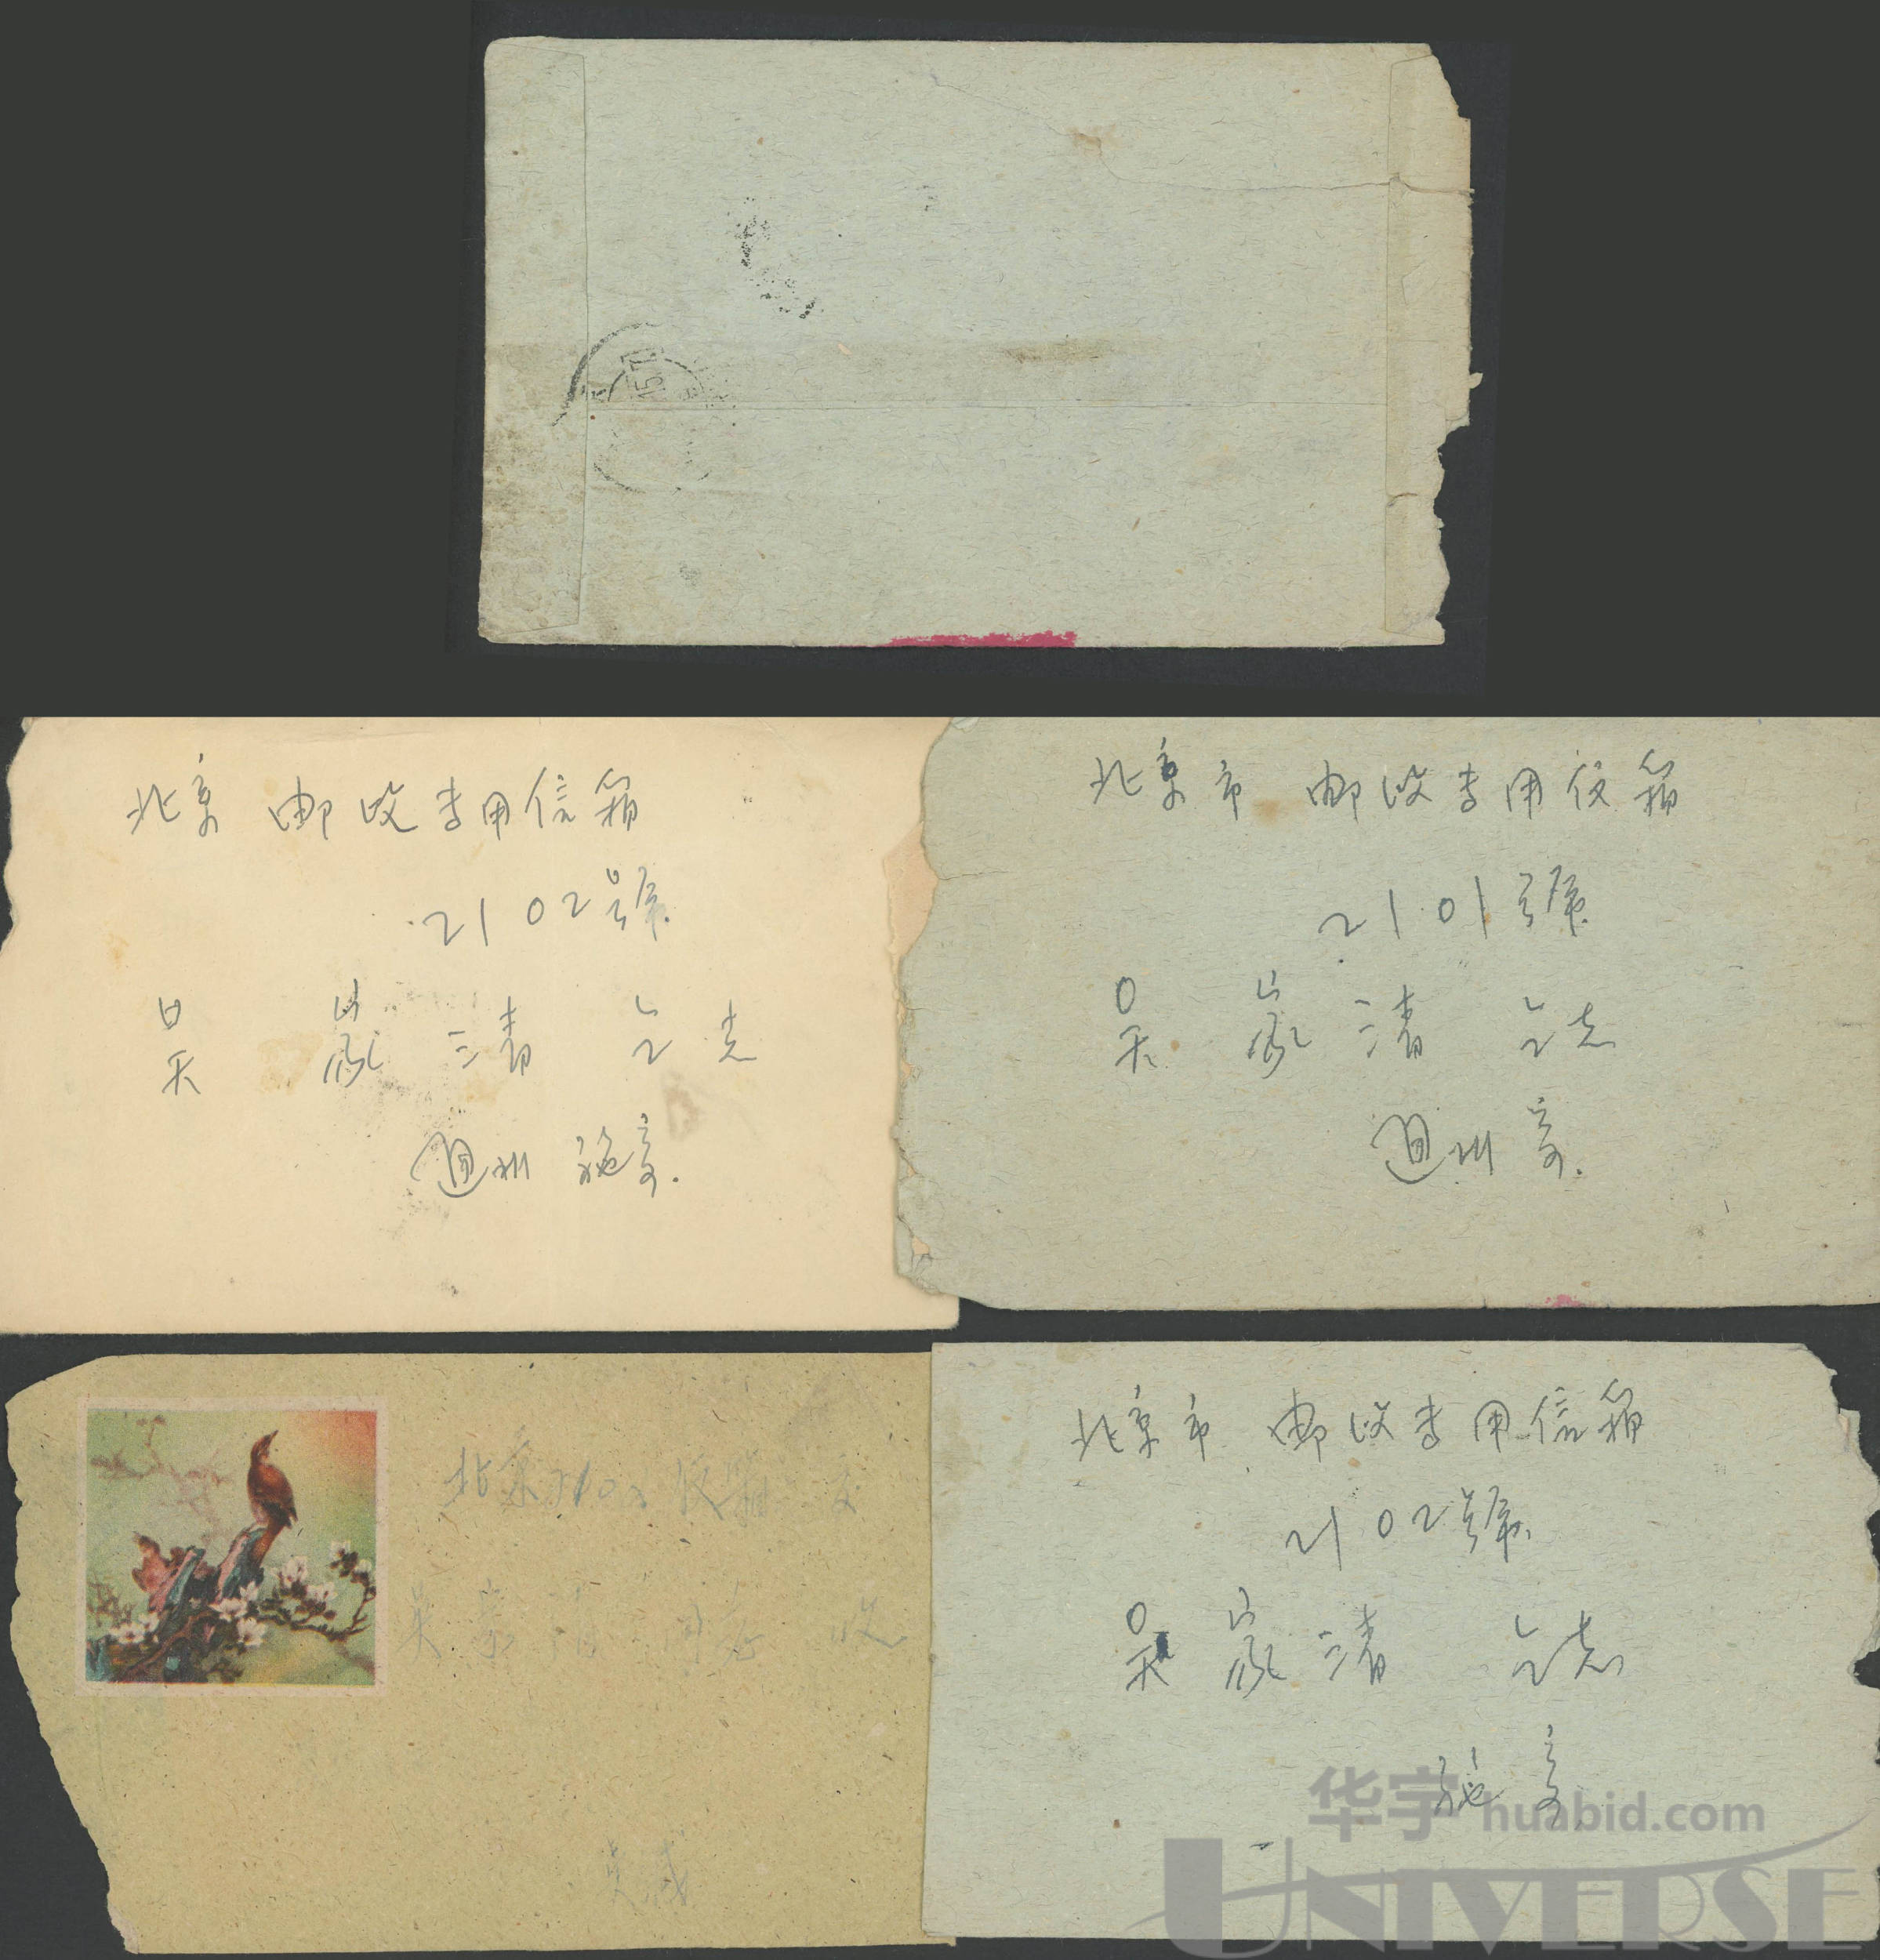 15
北京 邮政专用信箱
2102號
吴 嵩清 仝志
通州 施寄.
北京市 邮政专用信箱
2101號
吴 嵩清 仝志
通州 寄.
北京2102信箱 交
吴嵩清 同志 收
北京市 邮政专用信箱
2102號
吴嵩清 仝志
施寄
华宇 huabid.com
UNIVERSE